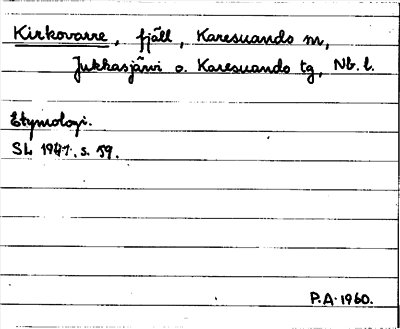 Kirkovarre, fjäll, Karesuando sn,
Jukkasjärvi o. Karesuando tg, Nb. l.
Etymologi.
SL 1947. s. 59.
P.A. 1960.